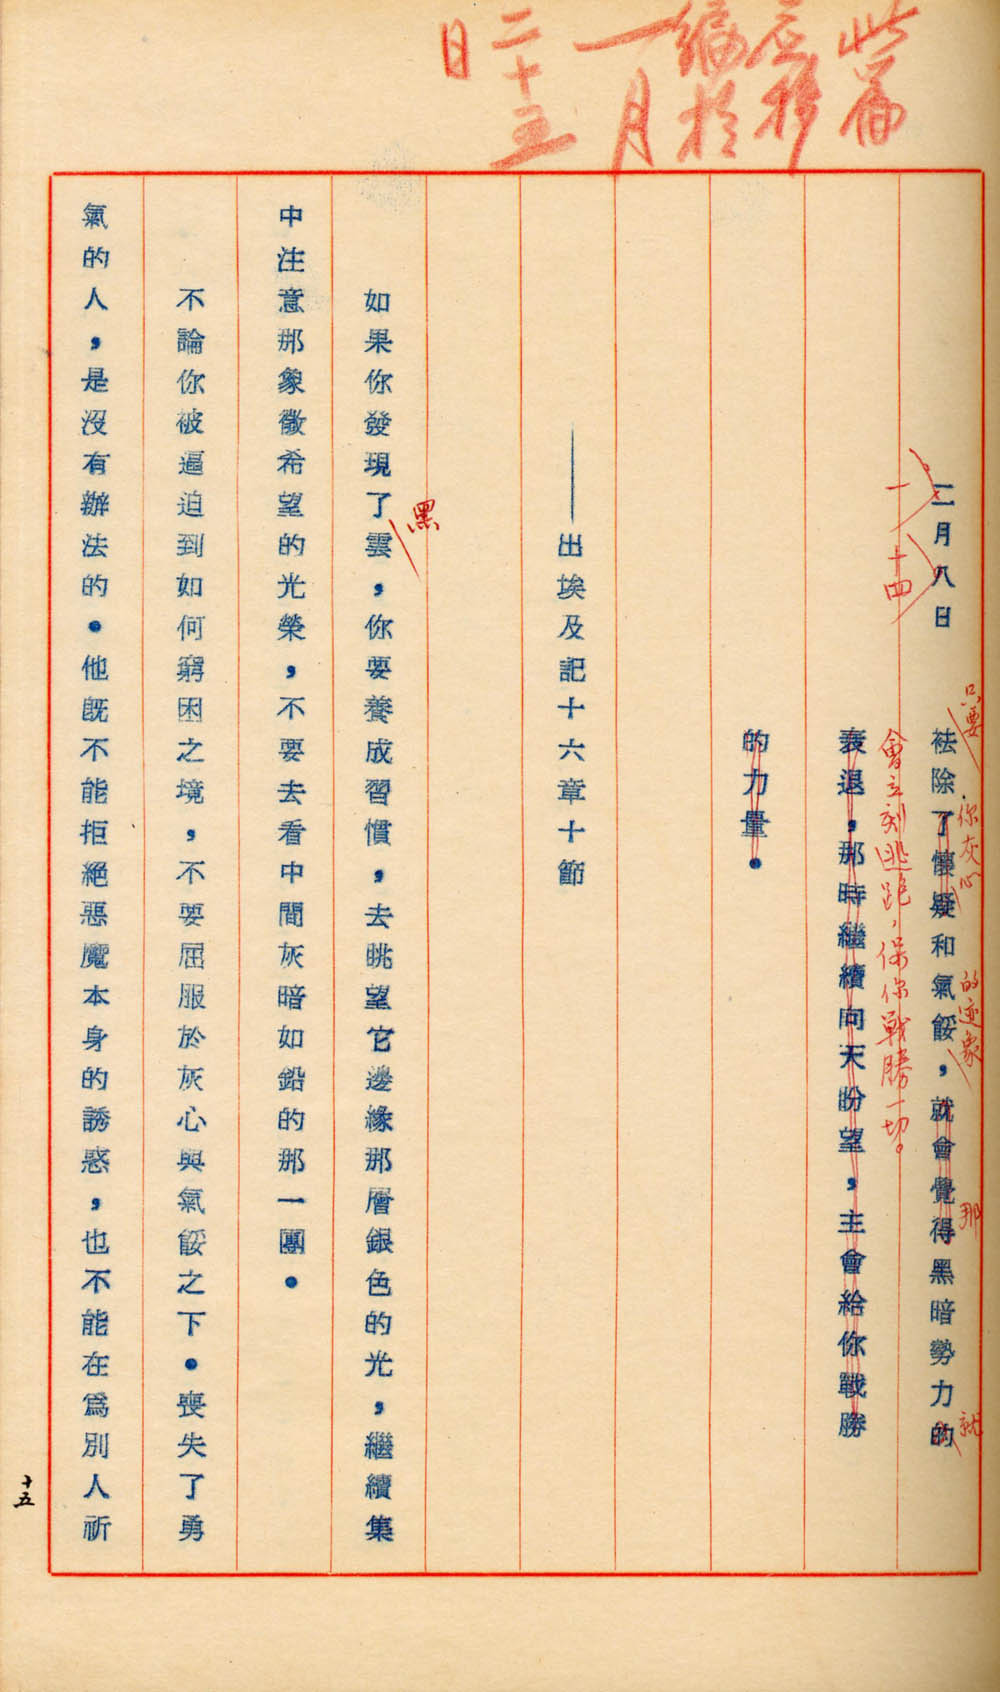 此篇
應移
編於
一月
二十五
日
二月八日
一 十四
祛除了懷疑和氣餒，就會覺得黑暗勢力的
只要 你灰心 的迹象 那 就
會立刻逃跑，保你戰勝一切。
衰退，那時繼續向天盼望，主會給你戰勝
的力量。
——出埃及記十六章十節
如果你發現了雲，你要養成習慣，去眺望它邊緣那層銀色的光，繼續集
黑
中注意那象徵希望的光榮，不要去看中間灰暗如鉛的那一團。
不論你被逼迫到如何窮困之境，不要屈服於灰心與氣餒之下。喪失了勇
氣的人，是沒有辦法的。他既不能拒絕惡魔本身的誘惑，也不能在為別人祈
十五